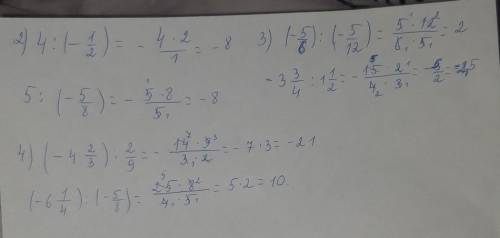 2) 4 : (-1/2) = - 4·2/1 = -8
5 : (-5/8) = - 5·8/5 = -8
3) (-5/6) : (-5/12) = 5·12/6·5 = 2
-3 3/4 : 1 1/2 = - 15·2/4·3 = -5/2 = -2,5
4) (-4 2/3) · 2/9 = - 14·9/3·2 = -7·3 = -21
(-6 1/4) : (-5/8) = 25·8/4·5 = 5·2 = 10.